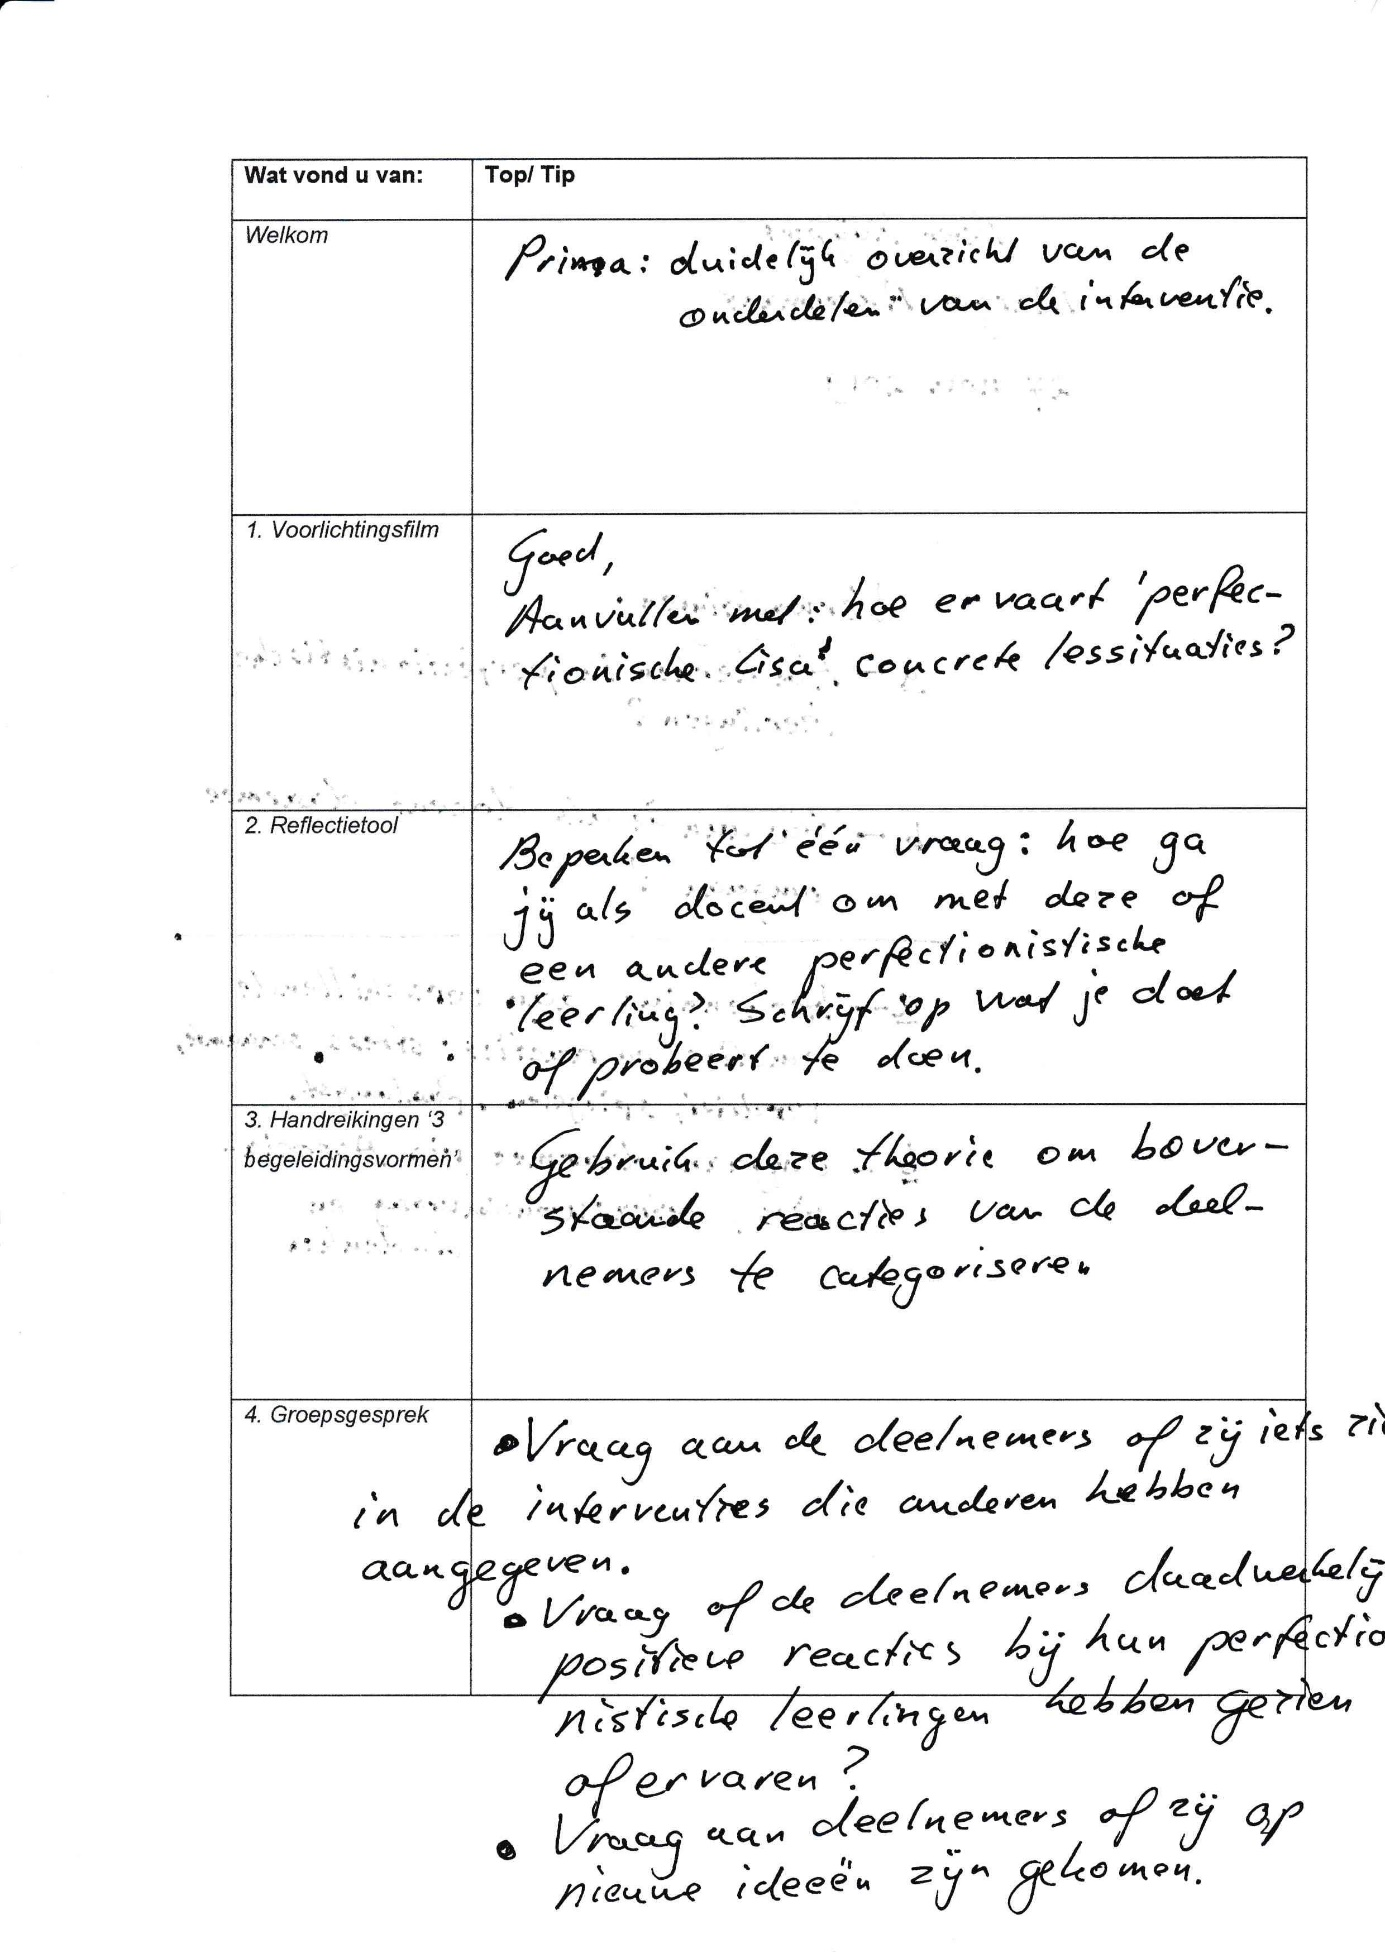 Wat vond u van:
Top/ Tip
Welkom
Prima: duidelijk overzicht van de
onderdelen van de interventie.
1. Voorlichtingsfilm
Goed,
Aanvullen met: hoe ervaart 'perfec-
tionische Lisa' concrete lessituaties?
2. Reflectietool
Beperken tot één vraag: hoe ga
jij als docent om met deze of
een andere perfectionistische
leerling? Schrijf op wat je doet
of probeert te doen.
3. Handreikingen '3
begeleidingsvormen'
Gebruik deze theorie om boven-
staande reacties van de deel-
nemers te categoriseren
4. Groepsgesprek
• Vraag aan de deelnemers of zij iets zie
in de interventies die anderen hebben
aangegeven.
• Vraag of de deelnemers daadwerkelij
positieve reacties bij hun perfectio
nistische leerlingen hebben gezien
of ervaren?
• Vraag aan deelnemers of zij op
nieuwe ideeën zijn gekomen.